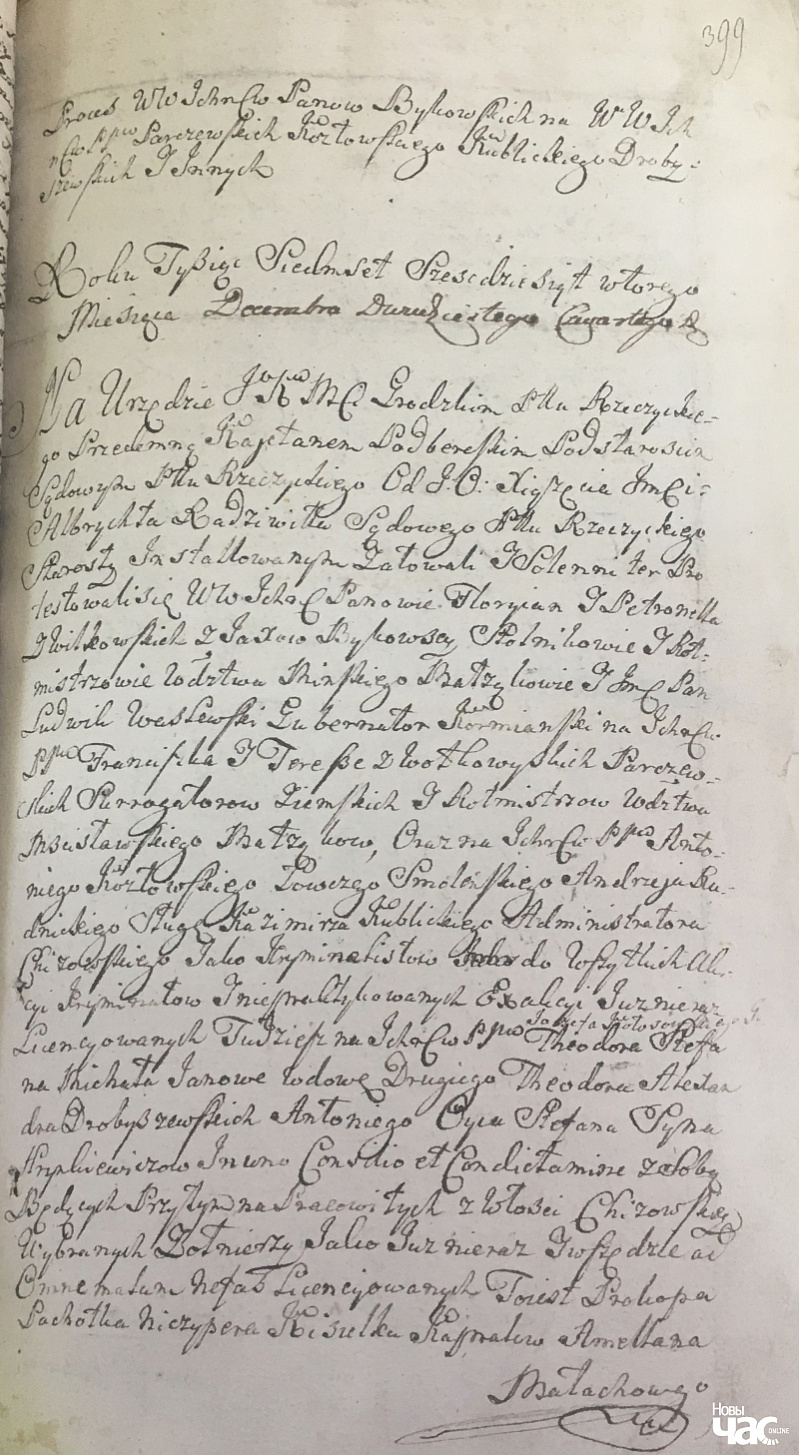 399
Proces WW IchmCw Panow Bykowskich na WW Ich
mCw PPw Parczewskich Kozłowskiego Kublickiego Droby-
szewskich I Innych
Roku Tysiąc Siedmset Szescdziesiąt wtorego
Miesiąca Decembra Dwudziestego Czwartego D
Na Urzędzie JKMC Grodzkim Pttu Rzeczyckie-
go Przedemną Kajetanem Podbereskim Podstaroscim
Sądowym Pttu Rzeczyckiego Od J: O: Xiązęcia JmCi=
Albrychta Radziwiłła Sądowego Pttu Rzeczyckiego
Starosty Installowanym Załowali I Solenniter Pro
testowali się WW IchmC Panowie Floryian I Petronella
Z Witkowskich z Jaxow Bykowscy Stolnikowie I Rot-
mistrzowie Wodztwa Minskiego Małzykowie I JmC Pan
Ludwik Waslewski Gubernator Kormianski na IchmCw
PPw Franciszka I Teresse z Wołkowyskich Parczew-
skich Surrogatorow Ziemskich I Rotmistrzow Wodztwa
Mscisławskiego Małzykow, Oraz na IchmCw PPw Anto-
niego Kozłowskiego Łowczego Smolenskiego Andrzeja Ru-
dnickiego Sługę Kazimirza Kublickiego Administratora
Chizowskiego Jako Kryminalistow do Wszytkich Ak-
cyi Kryminałow I niepraktykowanych Exakcyi Juz nieraz
Licencyowanych Tudziesz na IchmCw PPw Theodora Stefa
na Michała Janowe wdowę Drugiego Theodora Alexan
dra Drobyszewskich Antoniego Oyca Stefana Syna
Krypkiewiczow In uno Consilio et Condictamine z Sobą
Będących Przytym na Pracowitych z Włosci Chizowskiey
Wybranych Zołnierzy Jako Juz nieraz I wszędzie ad
Omne malum nefas Licencyowanych Toiest Prokopa
Pachołka Niczypera Kisielka Kapralow Amellana
Małachowego
Новы
час
ONLINE